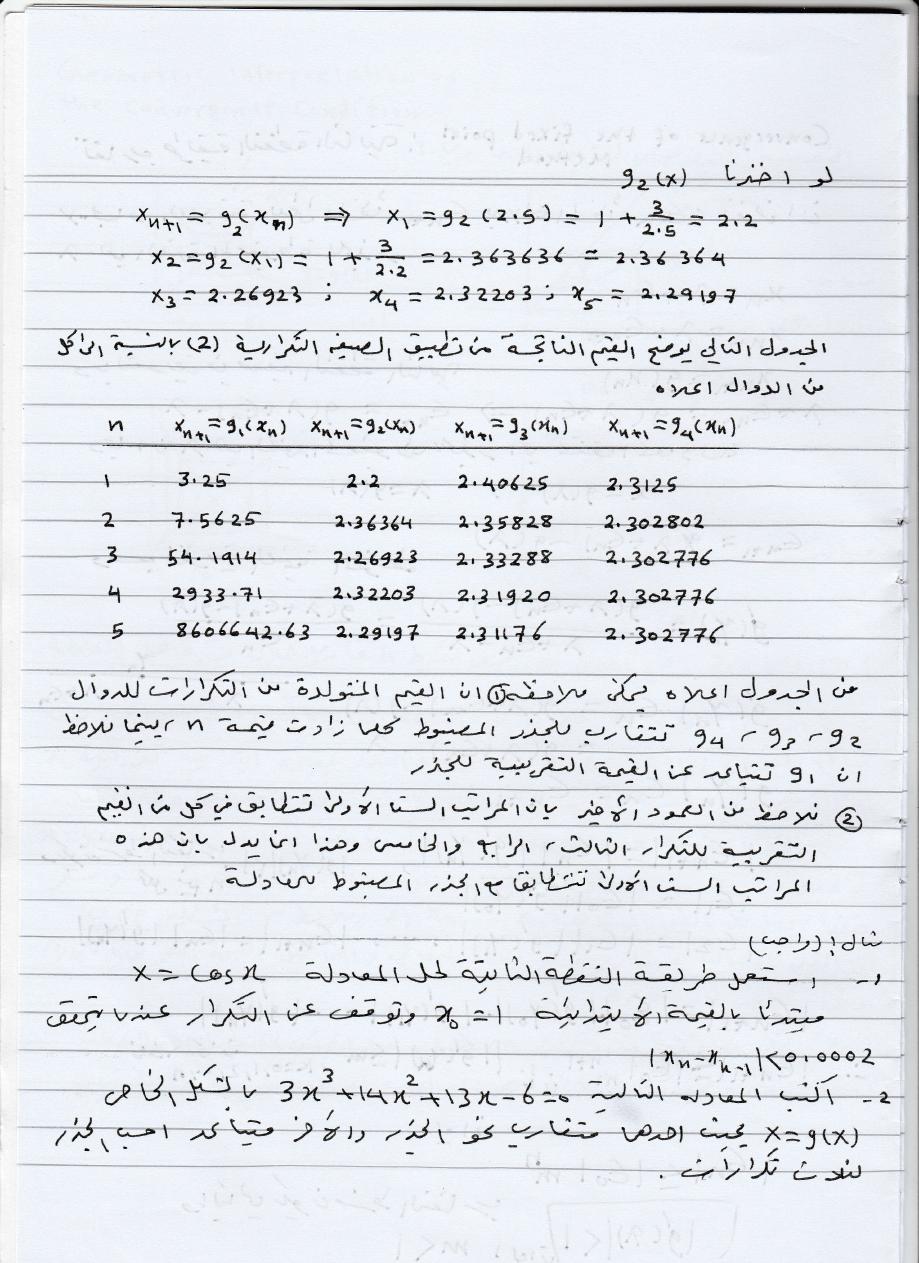 لو اخذنا g₂(x)
xₙ₊₁ = g₂(xₙ) ⇒ x₁ = g₂(2.5) = 1 + 3/2.5 = 2.2
x₂ = g₂(x₁) = 1 + 3/2.2 = 2.363636 = 2.36364
x₃ = 2.26923 ; x₄ = 2.32203 ; x₅ = 2.29197
الجدول التالي يوضح القيم الناتجة من تطبيق الصيغه التكرارية (2) بالنسبة الى كل
من الدوال اعلاه
n xₙ₊₁=g₁(xₙ) xₙ₊₁=g₂(xₙ) xₙ₊₁=g₃(xₙ) xₙ₊₁=g₄(xₙ)
1 3.25 2.2 2.40625 2.3125
2 7.5625 2.36364 2.35828 2.302802
3 54.1914 2.26923 2.33288 2.302776
4 2933.71 2.32203 2.31920 2.302776
5 8606642.63 2.29197 2.31176 2.302776
من الجدول اعلاه يمكن ملاحظه ① ان القيم المتولدة من التكرارات للدوال
g₂ ، g₃ ، g₄ تتقارب للجذر المضبوط كلما زادت قيمة n ، بينما نلاحظ
ان g₁ تتباعد عن القيمة التقريبية للجذر
② نلاحظ من العمود الأخير بان المراتب الستة الأولى تتطابق في كل من القيم
التقريبية للتكرار الثالث ، الرابع والخامس وهذا انما يدل بان هذه
المراتب الستة الأولى تتطابق مع الجذر المضبوط للمعادلة
مثال : (واجب)
1- استعمل طريقة النقطة الثابتة لحل المعادلة x = cos x
مبتدئا بالقيمة الأبتدائية x₀ = 1 وتوقف عن التكرار عندما يتحقق
|xₙ - xₙ₋₁| < 0.0002
2- اكتب المعادله التالية 3x³+14x²+13x-6=0 بالشكل الخاص
x=g(x) بحيث احدها متقارب نحو الجذر والأخر متباعد احسب الجذر
لثلاث تكرارات .